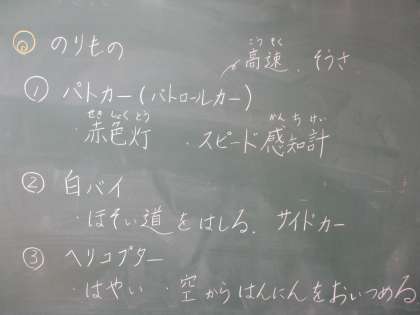 ◎ のりもの
こうそく
高速、そうさ
① パトカー(パトロールカー)
せきしょくとう かんちけい
・赤色灯 ・スピード感知計
② 白バイ
・ほそい道をはしる、サイドカー
③ ヘリコプター
・はやい ・空からはんにんをおいつめる